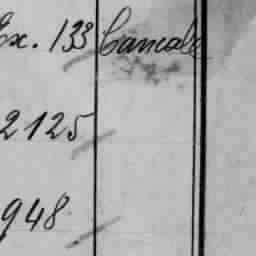 Ex. 133 Cancale
2125
948